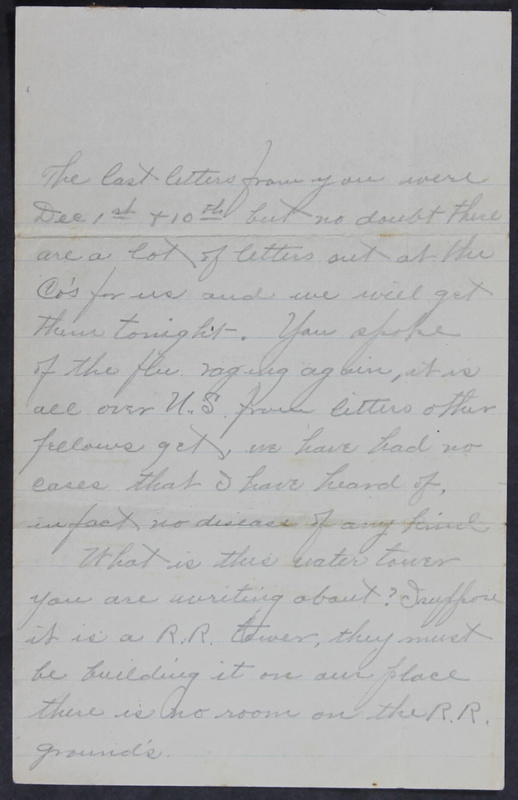 The last letters from you were
Dec 1st + 10th but no doubt there
are a lot of letters out at the
Co's for us and we will get
them tonight. You spoke
of the flu raging again, it is
all over U.S. from letters other
fellows get, we have had no
cases that I have heard of,
in fact no disease of any kind
What is this water tower
you are writing about? I suppose
it is a R.R. tower, they must
be building it on our place
there is no room on the R.R.
ground's.